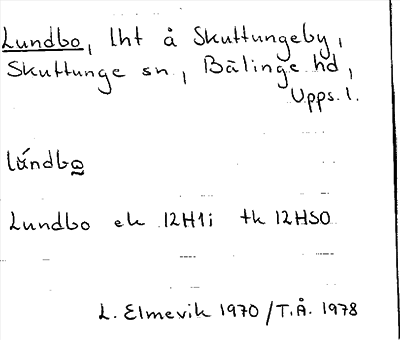 Lundbo, lht å Skuttungeby,
Skuttunge sn, Bälinge hd,
Upps. l.
Lundbo ek 12H1i tk 12HSO
L. Elmevik 1970 / T.Å. 1978